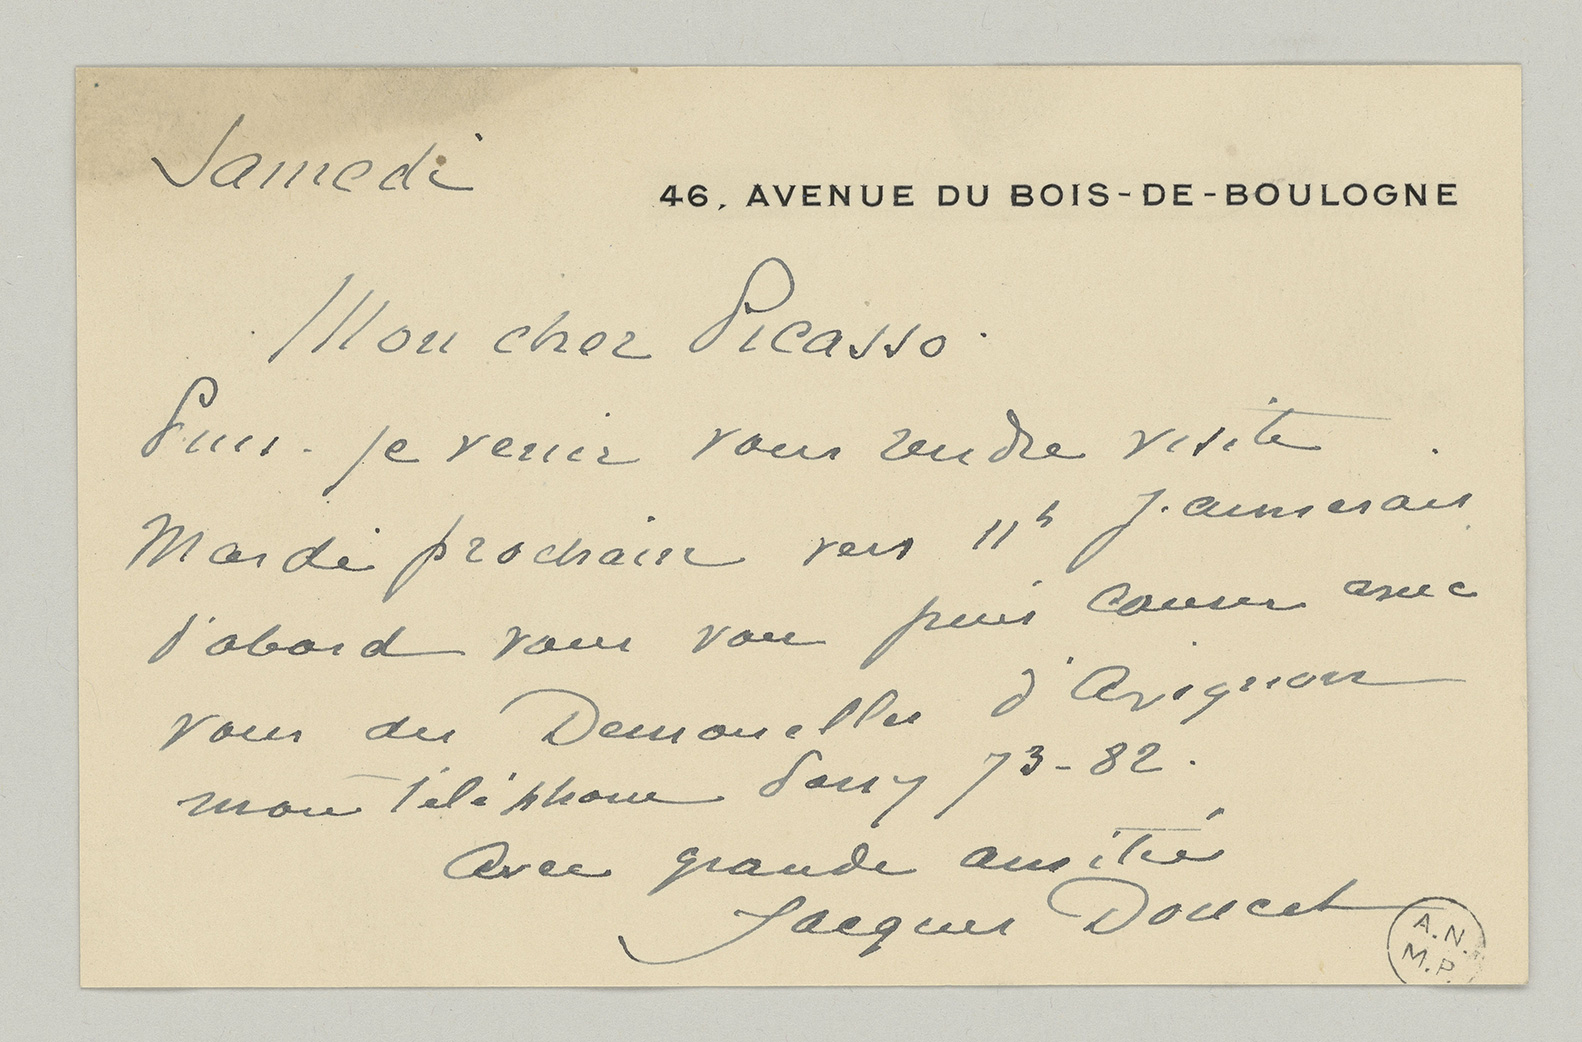 Samedi
46, AVENUE DU BOIS-DE-BOULOGNE
Mon cher Picasso.
Puis-je venir vous rendre visite
Mardi prochain vers 11h J'aimerais
d'abord vous voir puis causer avec
vous des Demoiselles d'Avignon
mon téléphone Passy 73-82.
Avec grande amitié
Jacques Doucet
A.N.
M.P.